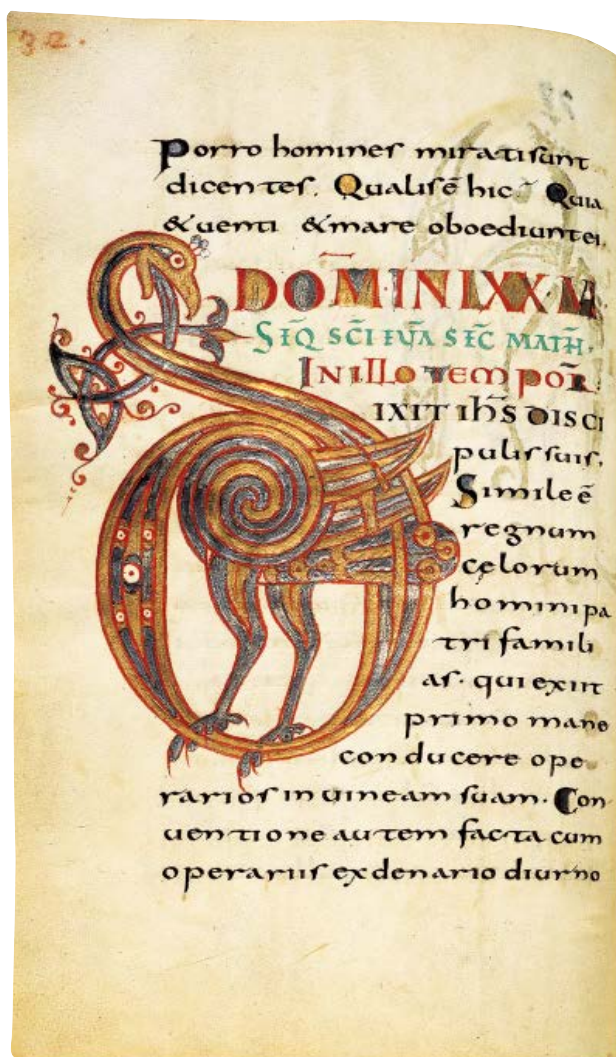 32.
Porro homines mirati sunt
dicentes. Qualis ē hic. Quia
& uenti & mare oboediunt ei.
DOM̄INI IXX M
SEQ̄ SC̄I EVA SEC̄ MATH̄.
IN ILLO TEMPOR̄
IXIT IH̄S DISCI
pulis suis.
Simile ē
regnum
cęlorum
homini pa
tri famili
as. qui exiit
primo mane
conducere ope
rarios in uineam suam. Con
uentione autem facta cum
operariis ex denario diurno